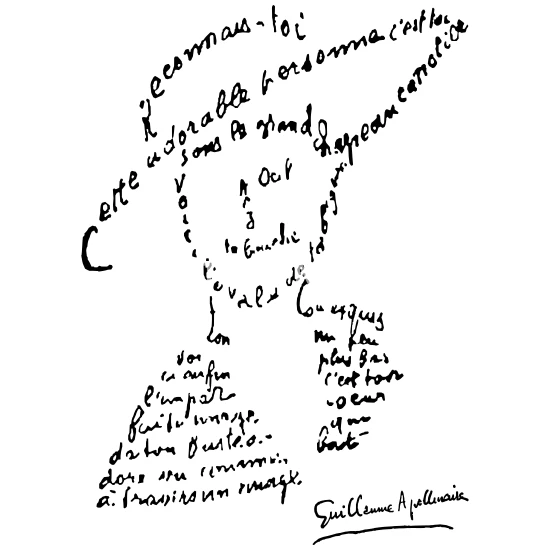 Reconnais-toi
Cette adorable personne c'est toi
sous le grand chapeau canotier
Oeil
Nez
ta bouche
Voici l'ovale de ta figure
Ton
cou exquis
Voi
ci enfin
l'impar
faite image
de ton buste a
doré vu comme
à travers un nuage
un peu
plus bas
c'est ton
coeur
qui
bat
Guillaume Apollinaire